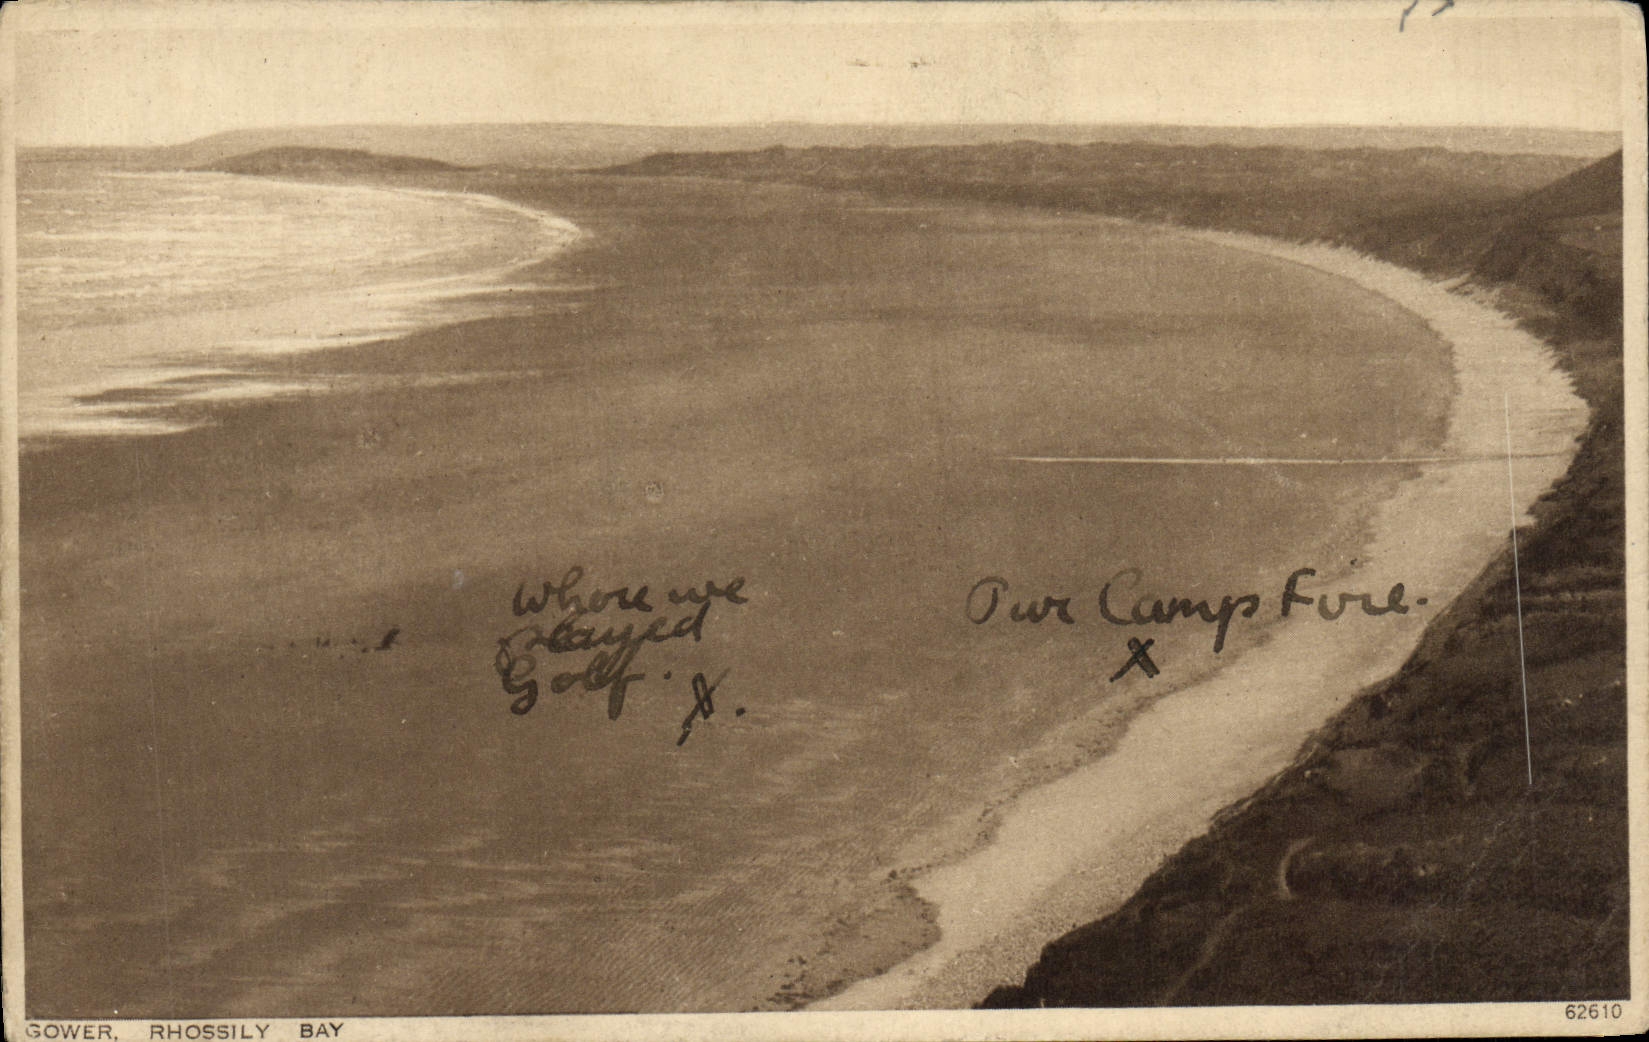 Where we
played
Golf.
X.
Our Camp Fire.
X
GOWER, RHOSSILY BAY
62610